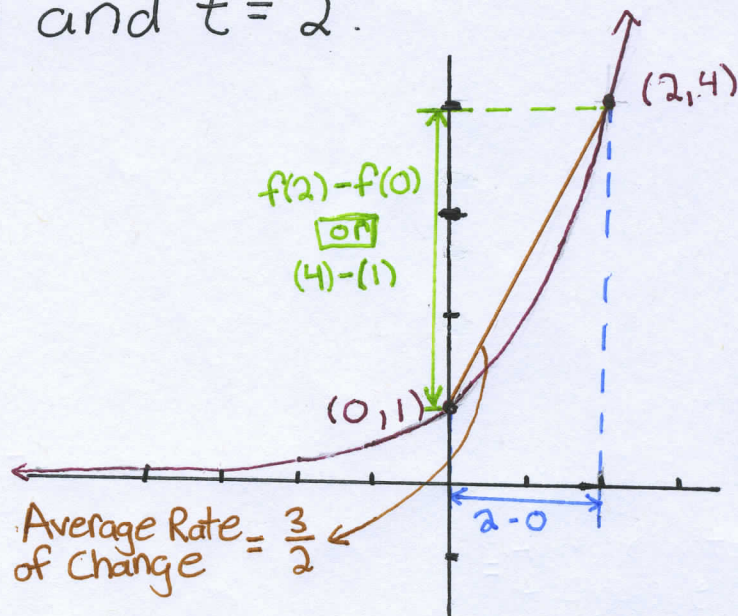 and t = 2.
(2,4)
f(2)-f(0)
or
(4)-(1)
(0,1)
2-0
Average Rate of Change = 3/2